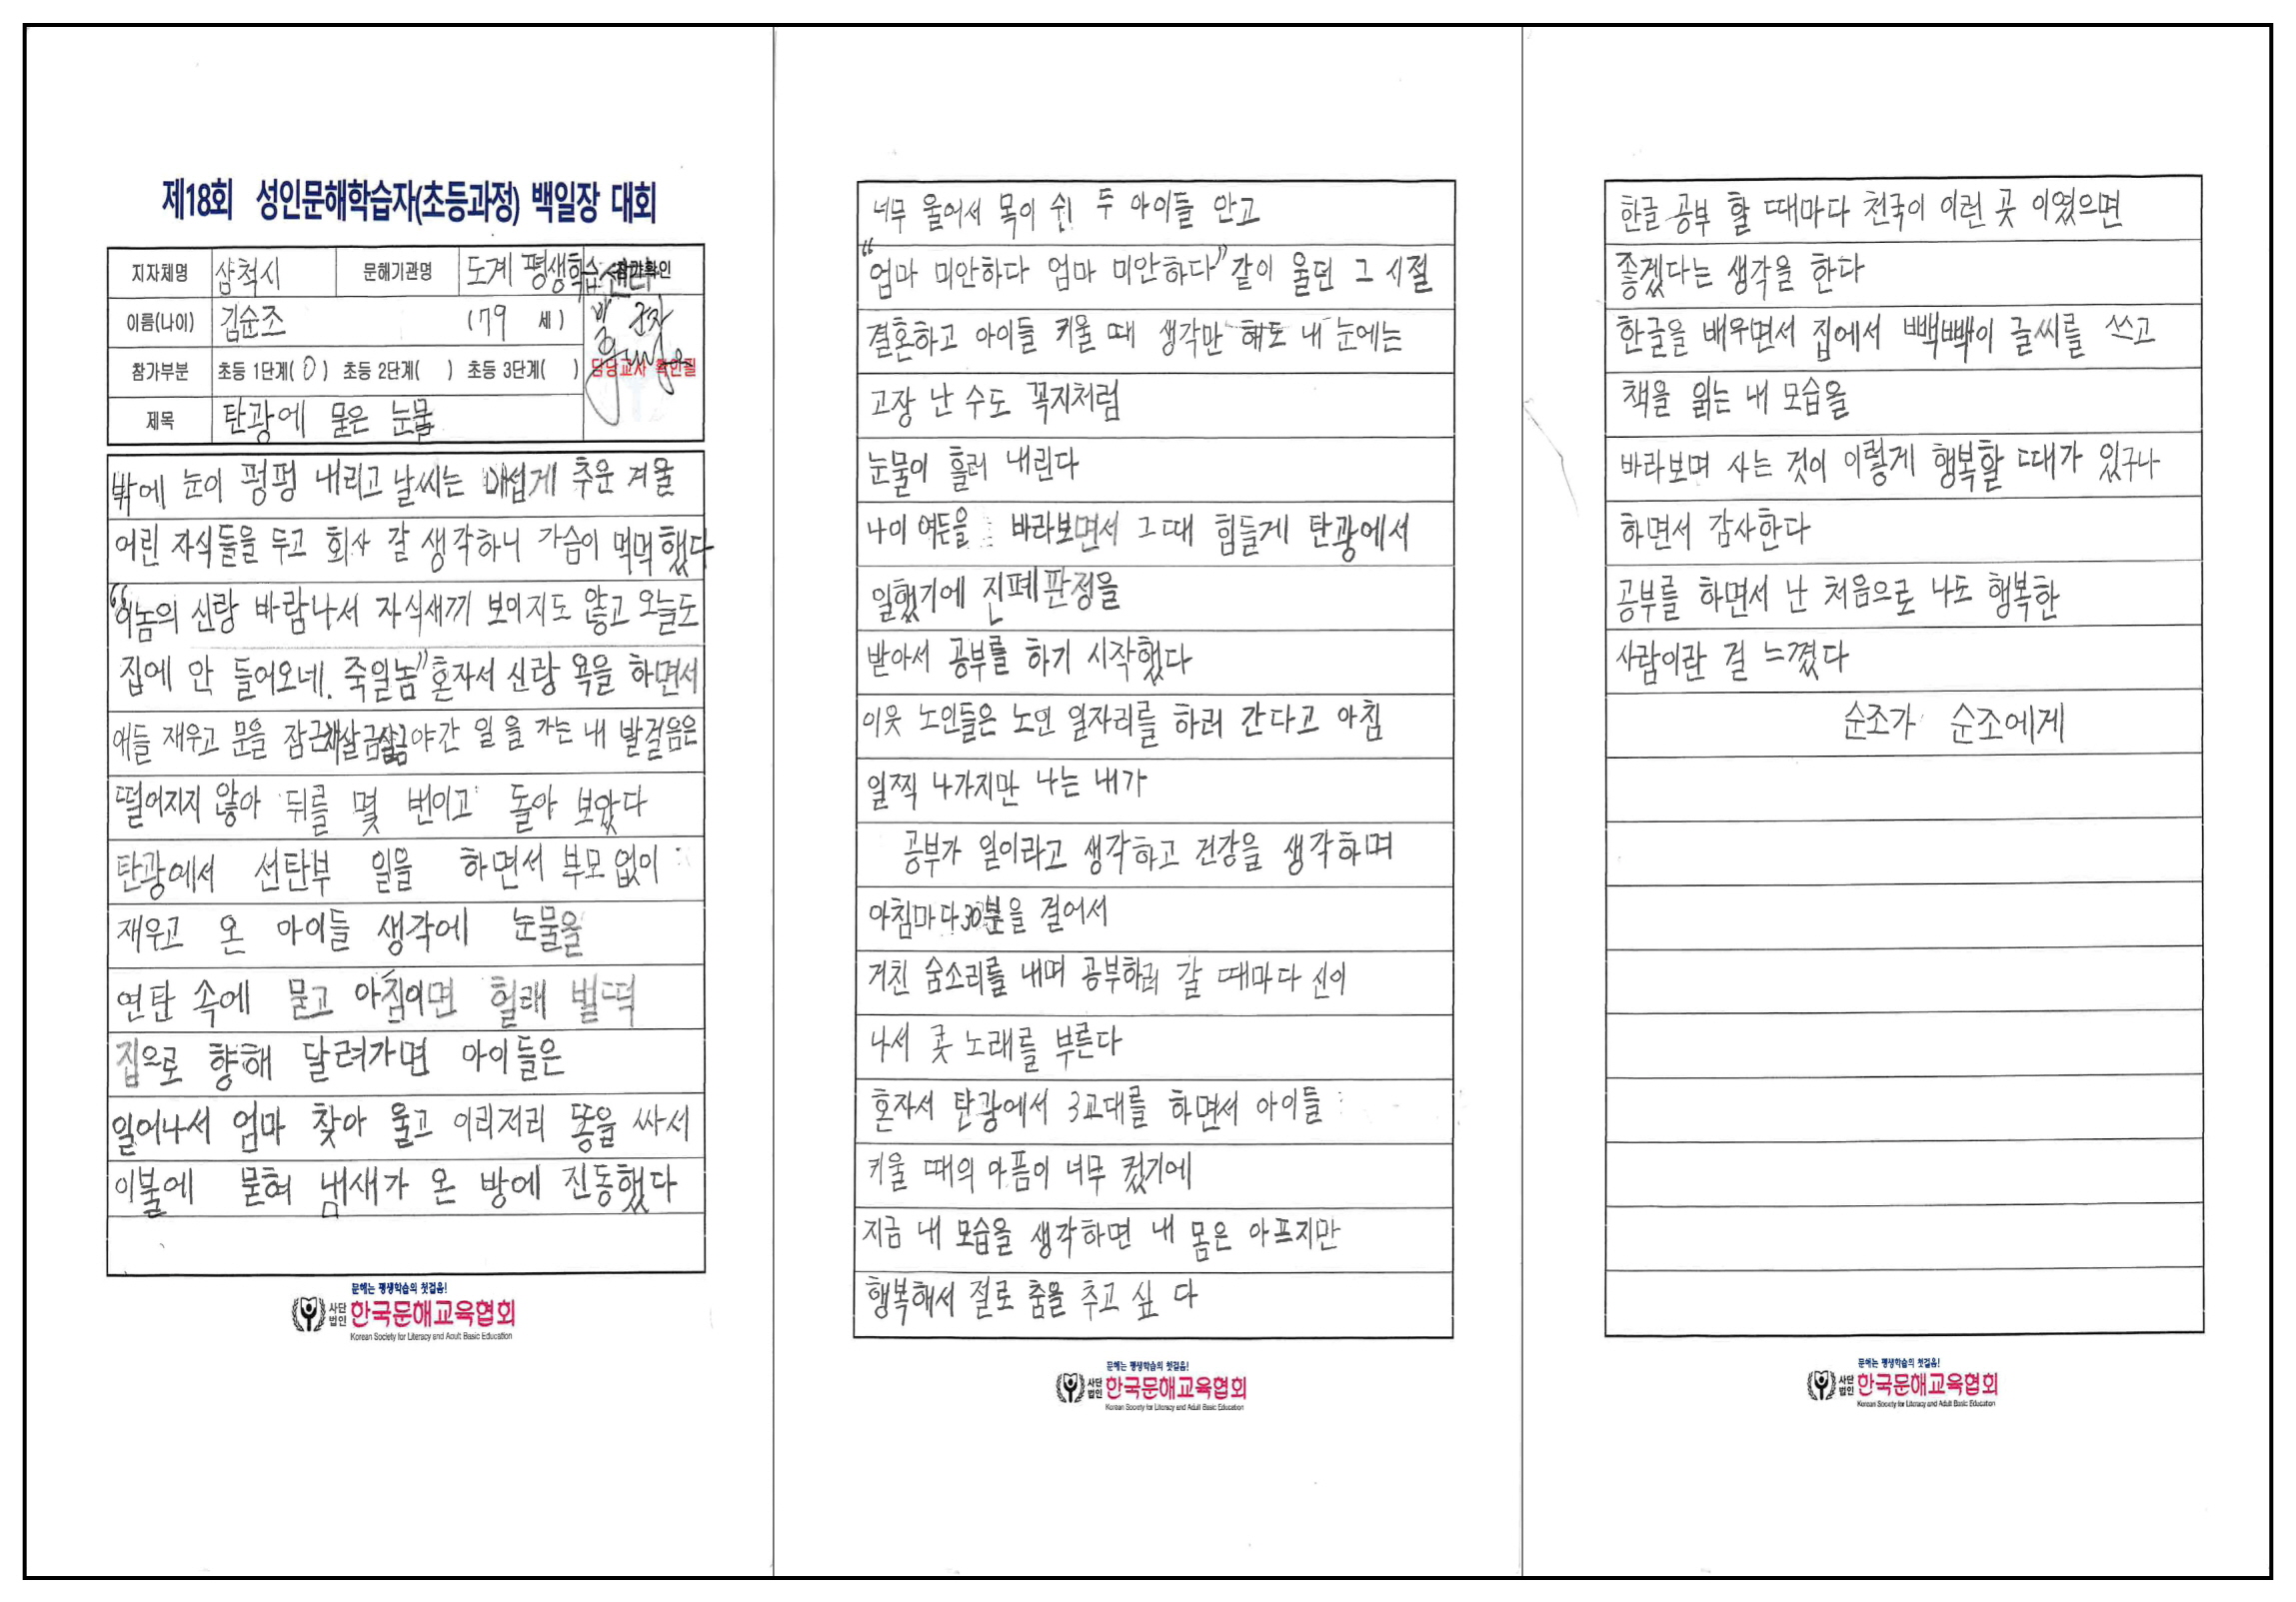 제18회 성인문해학습자(초등과정) 백일장 대회
지자체명 삼척시 문해기관명 도계 평생학습 참가확인
이름(나이) 김순조 (79 세)
참가부분 초등 1단계(0) 초등 2단계( ) 초등 3단계( ) 담당교사 확인필
제목 탄광에 묻은 눈물
밖에 눈이 펑펑 내리고 날씨는 매섭게 추운 겨울
어린 자식들을 두고 회사 갈 생각하니 가슴이 먹먹했다
"이놈의 신랑 바람나서 자식새끼 보이지도 않고 오늘도
집에 안 들어오네. 죽일놈" 혼자서 신랑 욕을 하면서
애들 재우고 문을 잠근채 살금살금 야간 일 을 가는 내 발걸음은
떨어지지 않아 뒤를 몇 번이고 돌아 보았다
탄광에서 선탄부 일을 하면서 부모 없이
재우고 온 아이들 생각에 눈물을
연탄 속에 묻고 아침이면 헐래 벌떡
집으로 향해 달려가면 아이들은
일어나서 엄마 찾아 울고 이리저리 똥을 싸서
이불에 묻혀 냄새가 온 방에 진동했다
문해는 평생학습의 첫걸음!
사단법인 한국문해교육협회
Korean Society for Literacy and Adult Basic Education
너무 울어서 목이 쉰 두 아이들 안고
"엄마 미안하다 엄마 미안하다" 같이 울던 그 시절
결혼하고 아이들 키울 때 생각만 해도 내 눈에는
고장 난 수도 꼭지처럼
눈물이 흘러 내린다
나이 여든을 바라보면서 그때 힘들게 탄광에서
일했기에 진폐판정을
받아서 공부를 하기 시작했다
이웃 노인들은 노인 일자리를 하러 간다고 아침
일찍 나가지만 나는 내가
공부가 일이라고 생각하고 건강을 생각하며
아침마다 30분을 걸어서
거친 숨소리를 내며 공부하러 갈 때마다 신이
나서 콧 노래를 부른다
혼자서 탄광에서 3교대를 하면서 아이들
키울 때의 아픔이 너무 컸기에
지금 내 모습을 생각하면 내 몸은 아프지만
행복해서 절로 춤을 추고 싶 다
문해는 평생학습의 첫걸음!
사단법인 한국문해교육협회
Korean Society for Literacy and Adult Basic Education
한글 공부 할 때마다 천국이 이런 곳 이였으면
좋겠다는 생각을 한다
한글을 배우면서 집에서 빽빽이 글씨를 쓰고
책을 읽는 내 모습을
바라보며 사는 것이 이렇게 행복할 때가 있구나
하면서 감사한다
공부를 하면서 난 처음으로 나도 행복한
사람이란 걸 느꼈다
순조가 순조에게
문해는 평생학습의 첫걸음!
사단법인 한국문해교육협회
Korean Society for Literacy and Adult Basic Education